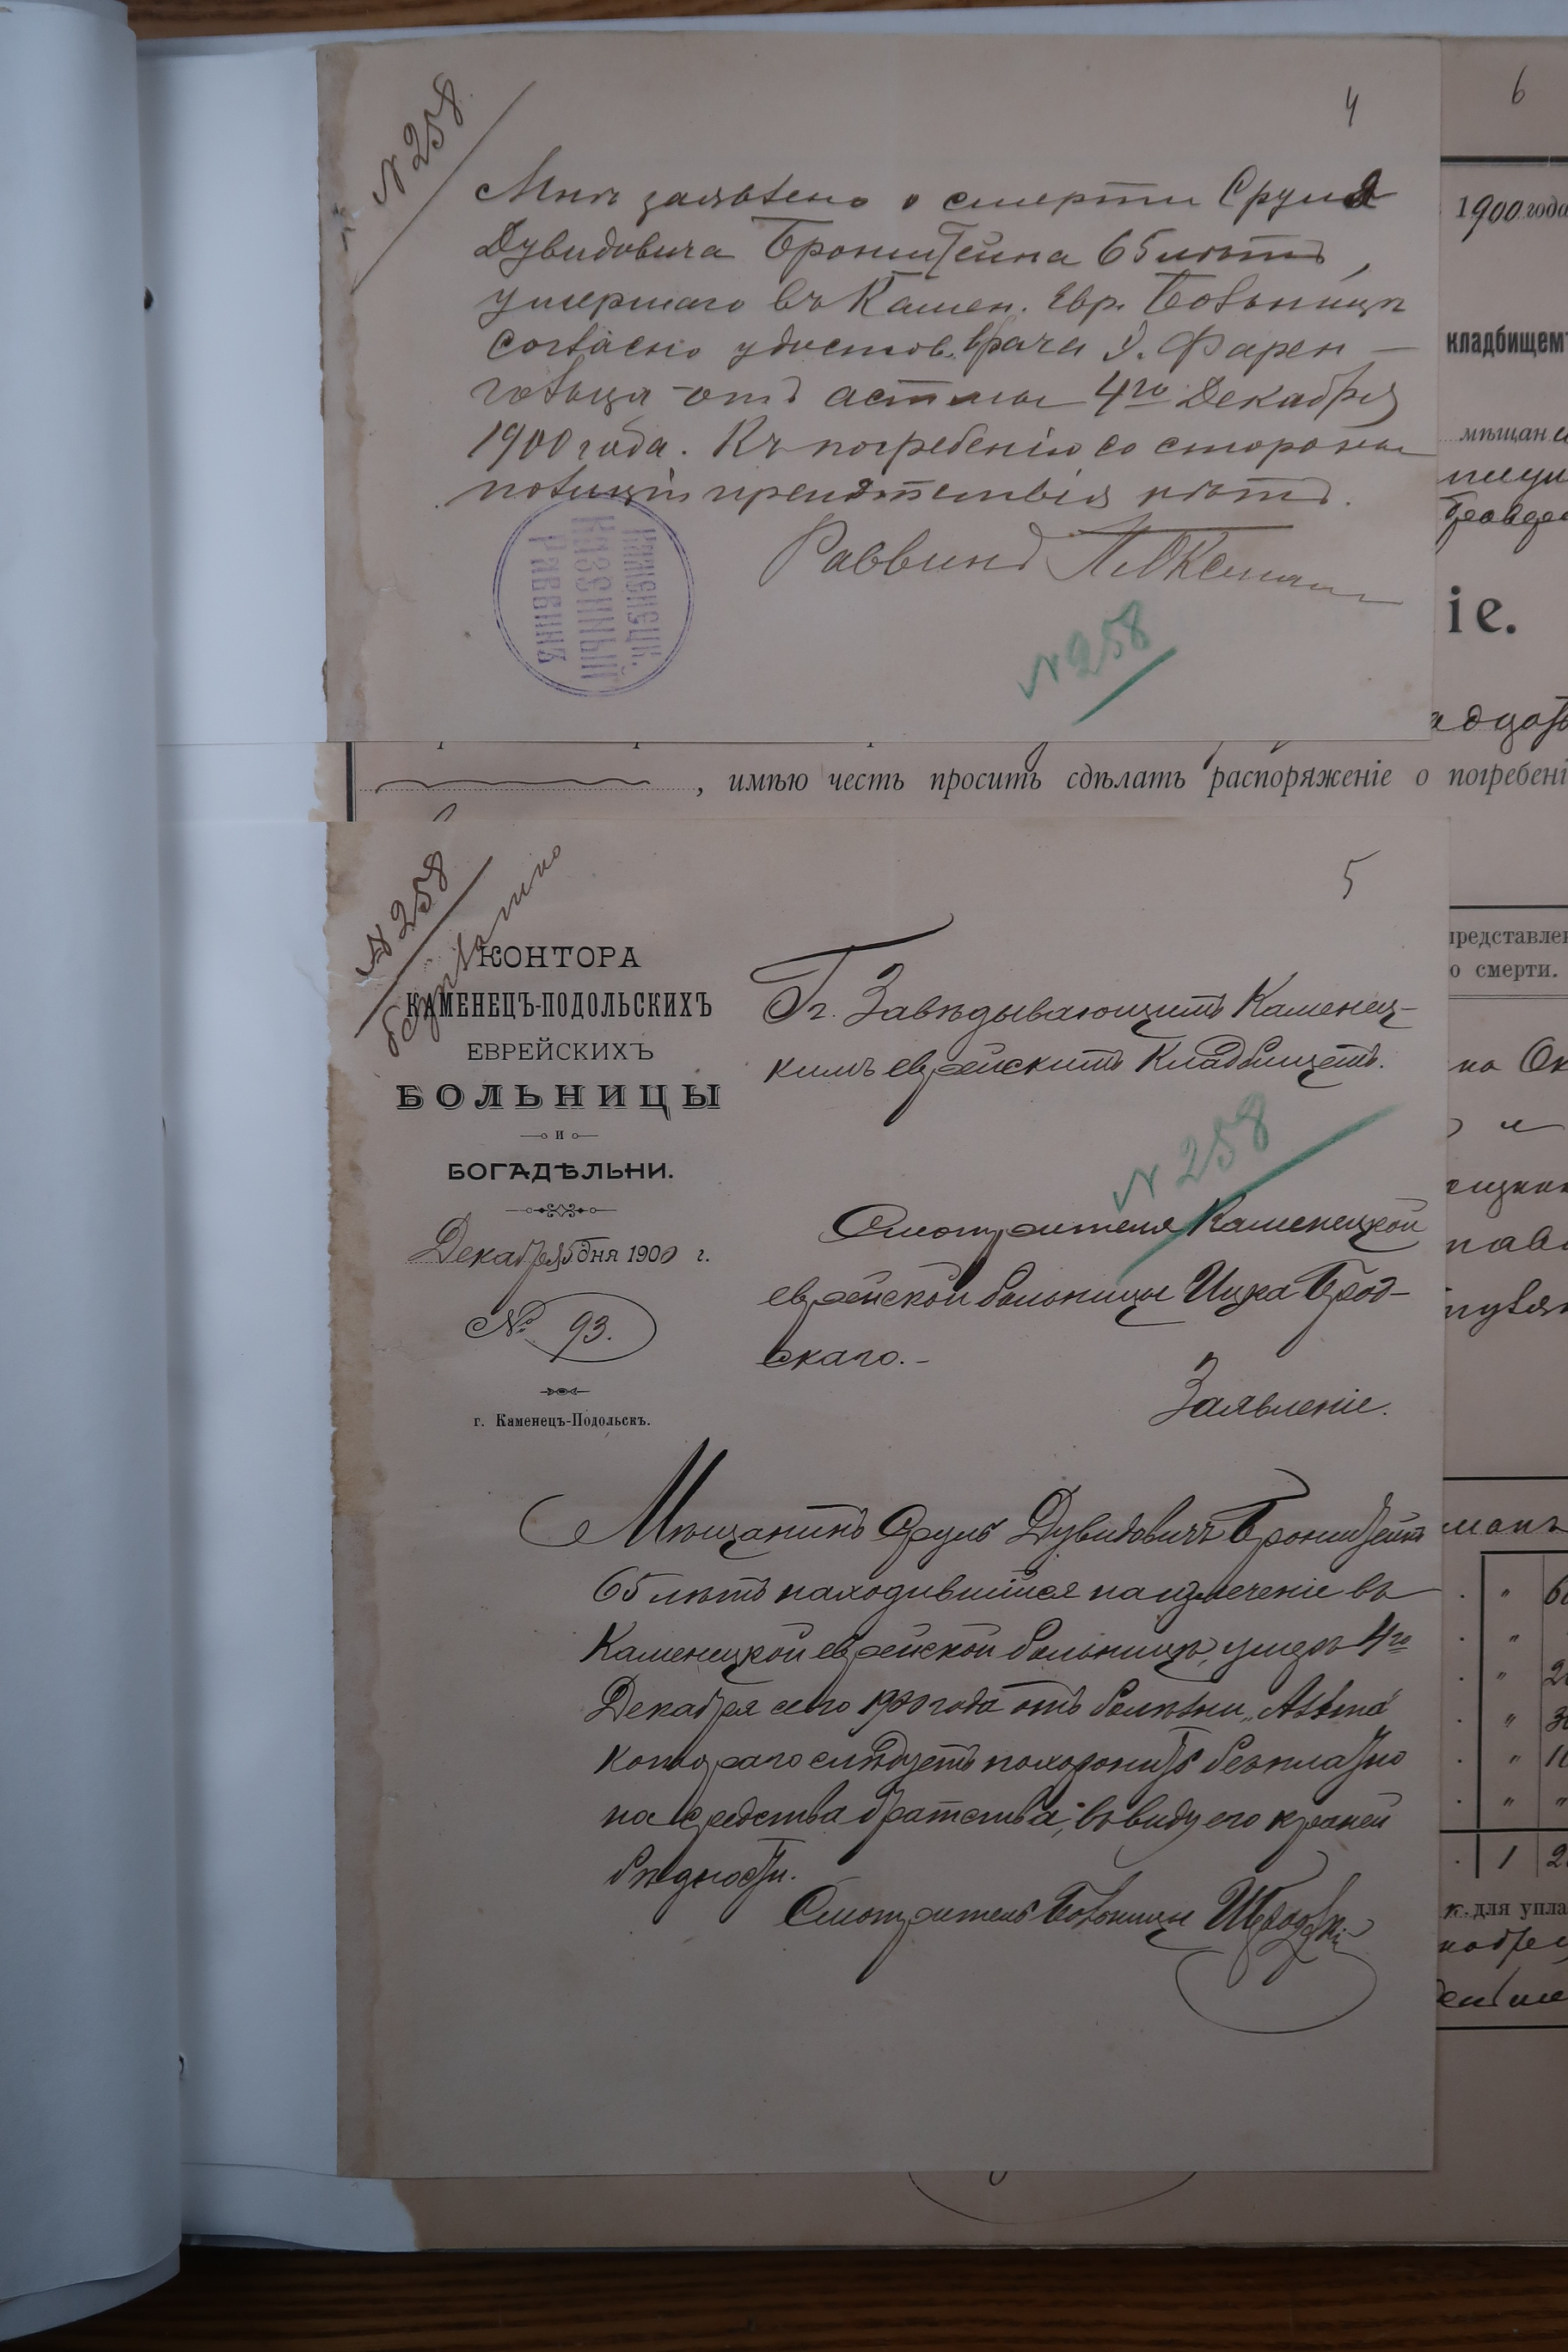 N 258
4
Мнѣ заявлено о смерти Сруля
Дувидовича Бронштейна 65 лѣтъ,
умершаго въ Камен. Евр. Больницѣ
согласно удостов. врача І. Фарен-
гольца - отъ астмы 4го Декабря
1900 года. Къ погребенію со стороны
полиціи препятствія нѣтъ.
Раввинъ
КАМЕНЕЦК.
КАЗЕННЫЙ
РАВВИНЪ
N 258
6
1900 года
кладбищем
мѣщан
іе.
, имѣю честь просить сдѣлать распоряженіе о погребені
N 258
безплатно
5
КОНТОРА
КАМЕНЕЦЪ-ПОДОЛЬСКИХЪ
ЕВРЕЙСКИХЪ
БОЛЬНИЦЫ
И
БОГАДѢЛЬНИ.
Декабря 5 дня 1900 г.
№ 93.
г. Каменецъ-Подольскъ.
Гг. Завѣдывающимъ Каменец-
кимъ еврейскимъ Кладбищемъ.
N 258
Смотрителя Каменецкой
еврейской больницы Ицка Брод-
скаго.-
Заявленіе.
Мѣщанинъ Сруль Дувидовичъ Бронштейнъ
65 лѣтъ находившійся на излеченіе въ
Каменецкой еврейской больницѣ, умеръ 4го
Декабря сего 1900 года отъ болѣзни „Astma"
котораго слѣдуетъ похоронить безплатно
на средства братства, въ виду его крайней
бѣдности.
Смотритель Больницы ИБродскій
представлен
о смерти.
на Ок
1 2
к. для упла